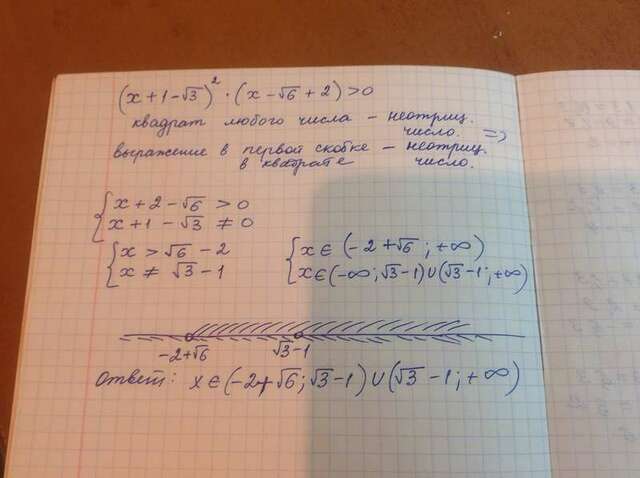 (x+1-√3)² · (x-√6+2)>0
квадрат любого числа - неотриц. число. =>
выражение в первой скобке - неотриц.
в квадрате число.
{ x+2-√6 > 0
x+1-√3 ≠ 0
{ x > √6-2
x ≠ √3-1
{ x ∈ (-2+√6; +∞)
x ∈ (-∞; √3-1) ∪ (√3-1; +∞)
-2+√6 √3-1
Ответ: x ∈ (-2+√6; √3-1) ∪ (√3-1; +∞)